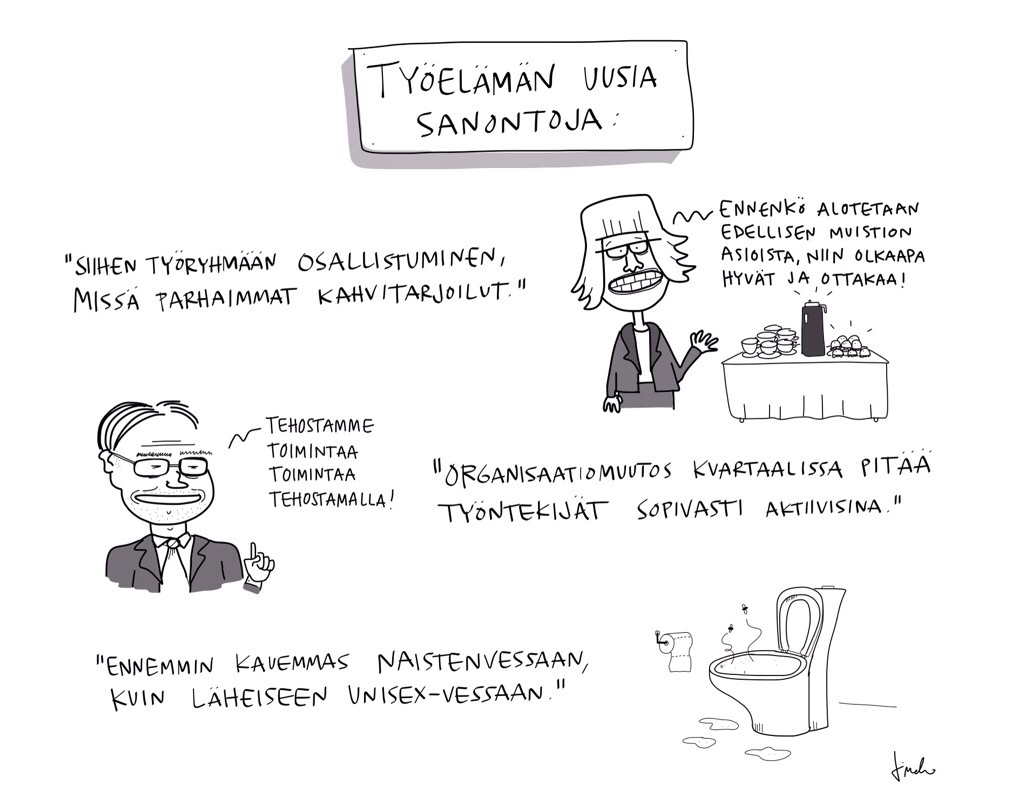 TYÖELÄMÄN UUSIA
SANONTOJA:
"SIIHEN TYÖRYHMÄÄN OSALLISTUMINEN,
MISSÄ PARHAIMMAT KAHVITARJOILUT."
ENNENKÖ ALOTETAAN
EDELLISEN MUISTION
ASIOISTA, NIIN OLKAAPA
HYVÄT JA OTTAKAA!
TEHOSTAMME
TOIMINTAA
TOIMINTAA
TEHOSTAMALLA!
"ORGANISAATIOMUUTOS KVARTAALISSA PITÄÄ
TYÖNTEKIJÄT SOPIVASTI AKTIIVISINA."
"ENNEMMIN KAUEMMAS NAISTENVESSAAN,
KUIN LÄHEISEEN UNISEX-VESSAAN."